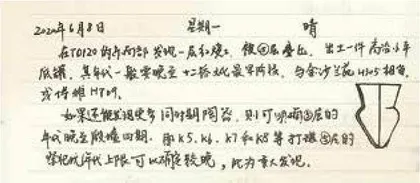 2020年6月8日 星期一 晴
在T0120的东南部发现一层红烧土,被④层叠压,出土一件高领小平
底罐,其年代一般要晚至十二桥文化最早阶段,与金沙兰苑H305相当,
或 H709。
如果还能发现更多同时期陶器,则可明确③层的
年代晚至殷墟四期。那K5、K6、K7和K8等打破③层的
祭祀坑年代上限可以确定较晚,此为重大发现。